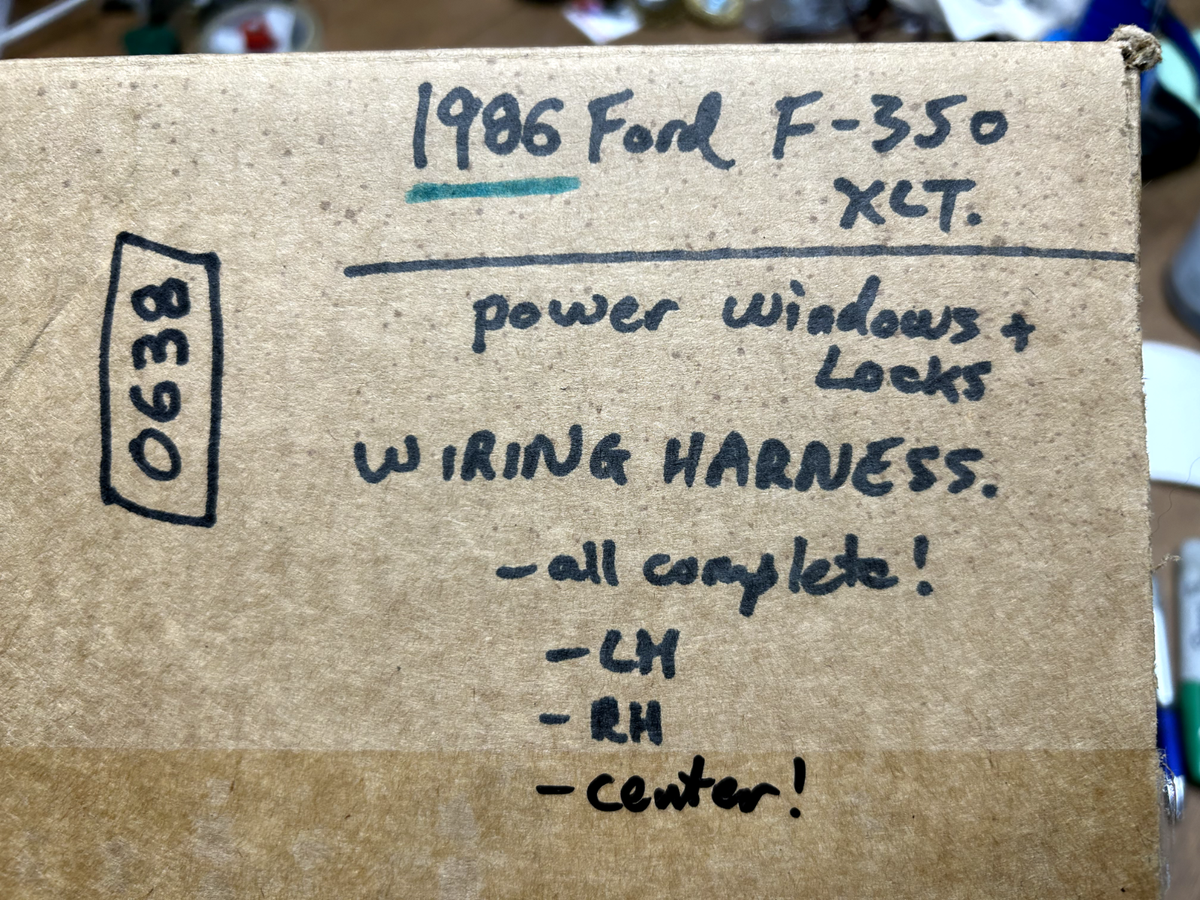 1986 Ford F-350
XLT.
power windows +
Locks
WIRING HARNESS.
- all complete!
- LH
- RH
- center!
0638